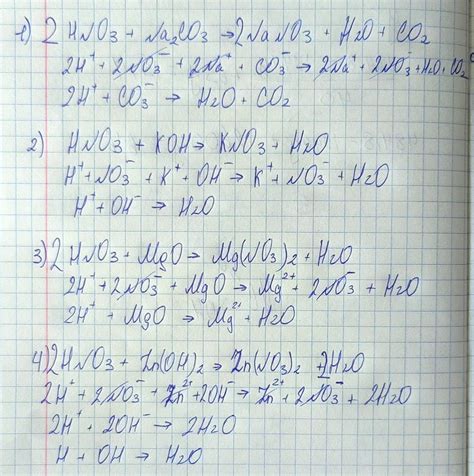 1) 2 HNO₃ + Na₂CO₃ → 2NaNO₃ + H₂O + CO₂
2H⁺ + 2NO₃⁻ + 2Na⁺ + CO₃⁻ → 2Na⁺ + 2NO₃⁻ + H₂O + CO₂
2H⁺ + CO₃⁻ → H₂O + CO₂
2) HNO₃ + KOH → KNO₃ + H₂O
H⁺ + NO₃⁻ + K⁺ + OH⁻ → K⁺ + NO₃⁻ + H₂O
H⁺ + OH⁻ → H₂O
3) 2 HNO₃ + MgO → Mg(NO₃)₂ + H₂O
2H⁺ + 2NO₃⁻ + MgO → Mg²⁺ + 2NO₃⁻ + H₂O
2H⁺ + MgO → Mg²⁺ + H₂O
4) 2HNO₃ + Zn(OH)₂ → Zn(NO₃)₂ + 2H₂O
2H⁺ + 2NO₃⁻ + Zn²⁺ + 2OH⁻ → Zn²⁺ + 2NO₃⁻ + 2H₂O
2H⁺ + 2OH⁻ → 2H₂O
H + OH → H₂O